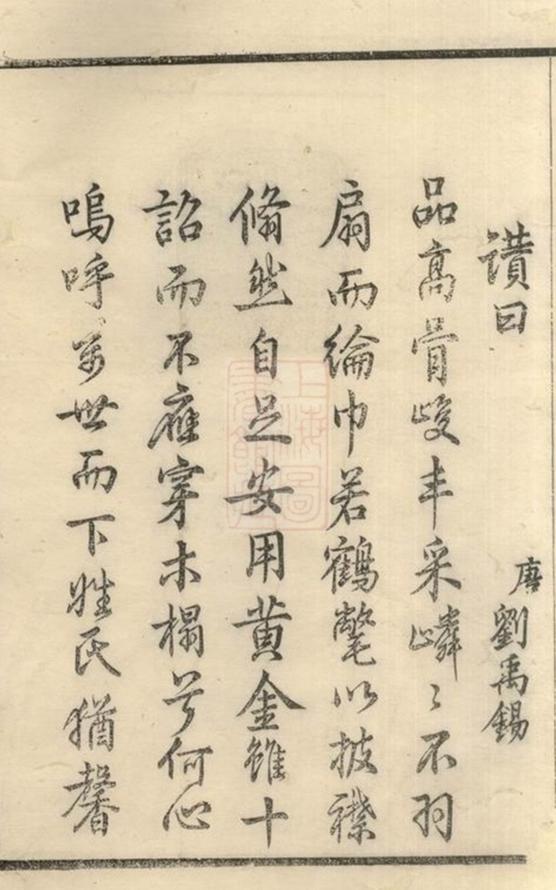 讚曰
唐劉禹錫
品高骨峻丰采嶙〻不羽
扇而綸巾若鶴氅以披襟
翛然自足安用黃金雖十
詔而不應穿木榻兮何心
嗚呼萬世而下姓氏猶馨
上海圖
書館藏